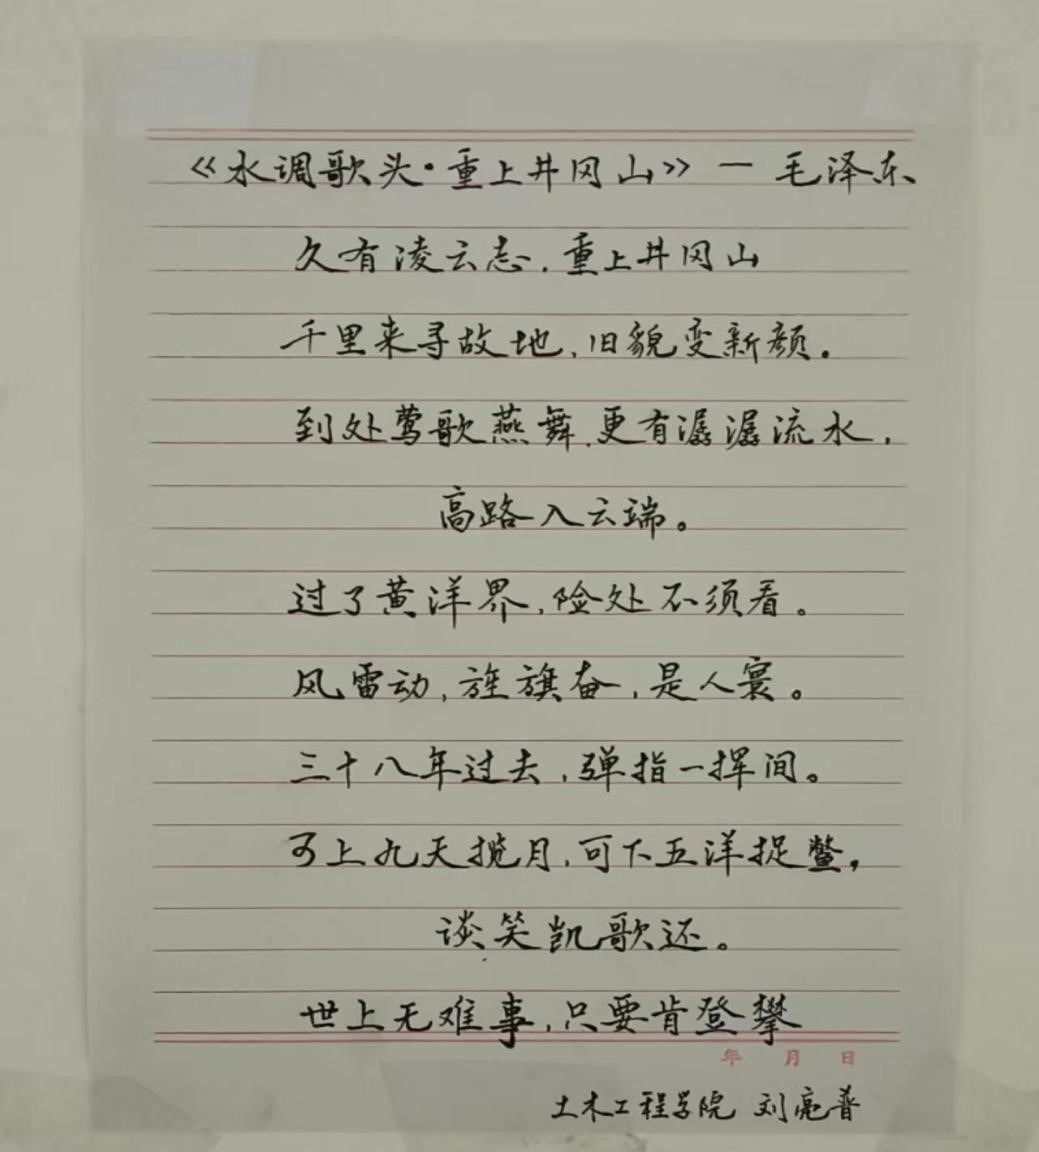 《水调歌头·重上井冈山》一 毛泽东
久有凌云志,重上井冈山
千里来寻故地,旧貌变新颜.
到处莺歌燕舞,更有潺潺流水,
高路入云端。
过了黄洋界,险处不须看。
风雷动,旌旗奋,是人寰。
三十八年过去,弹指一挥间。
可上九天揽月,可下五洋捉鳖,
谈笑凯歌还。
世上无难事,只要肯登攀
年 月 日
土木工程学院 刘亮普